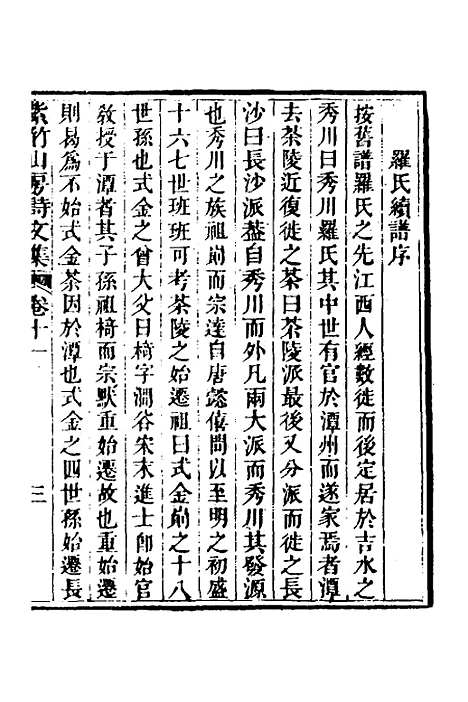 羅氏續譜序
按舊譜羅氏之先江西人經數徙而後定居於吉水之
秀川曰秀川羅氏其中世有官於潭州而遂家焉者潭
去茶陵近復徙之茶曰茶陵派最後又分派而徙之長
沙曰長沙派蓋自秀川而外凡兩大派而秀川其發源
也秀川之族祖崱而宗達自唐懿僖間以至明之初盛
十六七世班班可考茶陵之始遷祖曰式金崱之十八
世孫也式金之曾大父曰椅字澗谷宋末進士卽始官
敎授于潭者其子孫祖椅而宗默重始遷故也重始遷
則曷爲不始式金茶因於潭也式金之四世孫始遷長
紫竹山房詩文集 卷十一 三